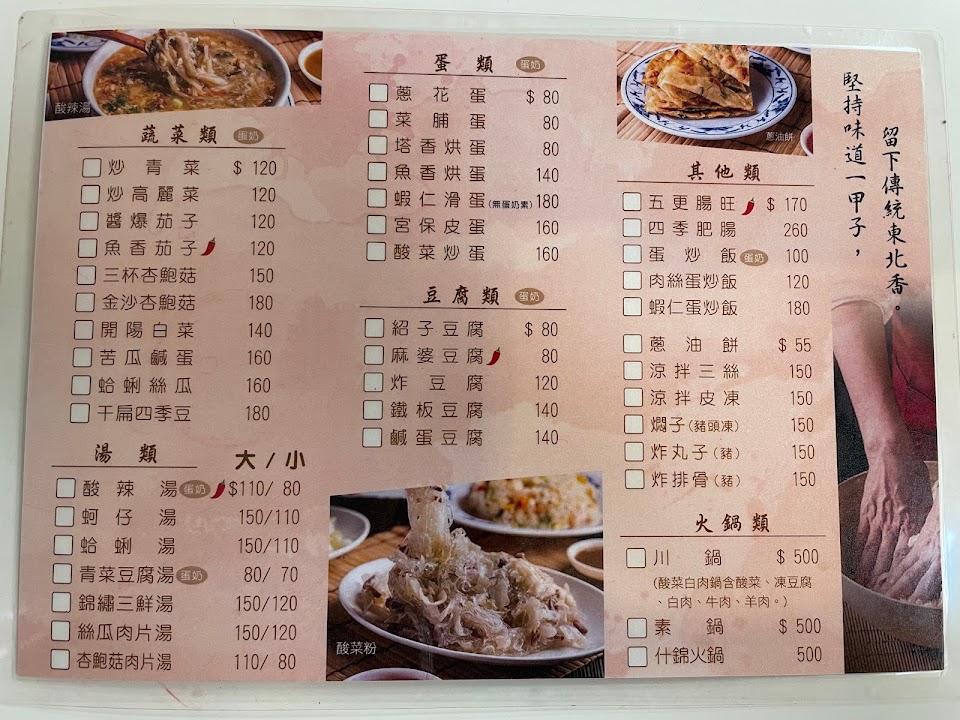 酸辣湯
蔬菜類 蛋奶
炒青菜 $ 120
炒高麗菜 120
醬爆茄子 120
魚香茄子 120
三杯杏鮑菇 150
金沙杏鮑菇 180
開陽白菜 140
苦瓜鹹蛋 160
蛤蜊絲瓜 160
干扁四季豆 180
湯類 大/小
酸辣湯 蛋奶 $110/ 80
蚵仔湯 150/110
蛤蜊湯 150/110
青菜豆腐湯 蛋奶 80/ 70
錦繡三鮮湯 150/120
絲瓜肉片湯 150/120
杏鮑菇肉片湯 110/ 80
蛋類 蛋奶
蔥花蛋 $ 80
菜脯蛋 80
塔香烘蛋 80
魚香烘蛋 140
蝦仁滑蛋(無蛋奶素) 180
宮保皮蛋 160
酸菜炒蛋 160
豆腐類 蛋奶
紹子豆腐 $ 80
麻婆豆腐 80
炸豆腐 120
鐵板豆腐 140
鹹蛋豆腐 140
酸菜粉
蔥油餅
其他類
五更腸旺 $ 170
四季肥腸 260
蛋炒飯 蛋奶 100
肉絲蛋炒飯 120
蝦仁蛋炒飯 180
蔥油餅 $ 55
涼拌三絲 150
涼拌皮凍 150
燜子(豬頭凍) 150
炸丸子(豬) 150
炸排骨(豬) 150
火鍋類
川鍋 $ 500
(酸菜白肉鍋含酸菜、凍豆腐
、白肉、牛肉、羊肉。)
素鍋 $ 500
什錦火鍋 500
堅持味道一甲子，
留下傳統東北香。